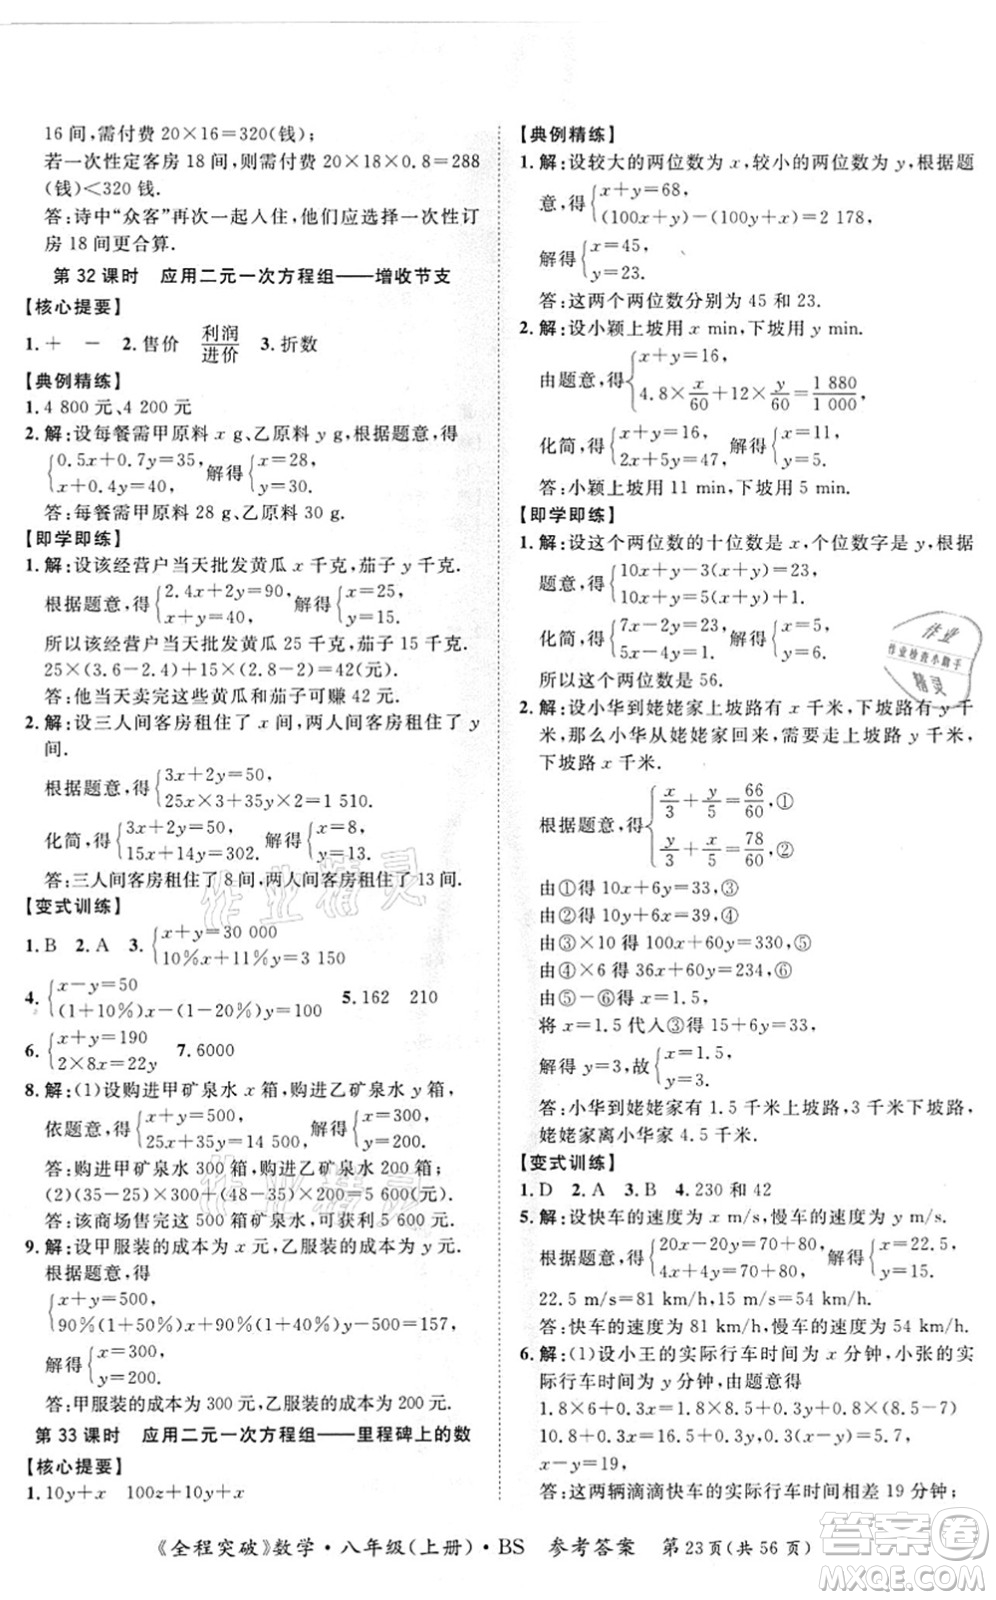 16 间,需付费 20×16=320(钱);
若一次性定客房 18 间,需付费 20×18×0.8=288
(钱)<320 钱.
答:诗中“众客”再次一起入住,他们应选择一次性订
房 18 间更合算.
第 32 课时　应用二元一次方程组——增收节支
【核心提要】
1.+　−　2.售价　利润/进价　3.折数
【典例精练】
1.4 800 元、4 200 元
2.解:设每餐需甲原料 x g、乙原料 y g,根据题意,得
{0.5x+0.7y=35, 解得{x=28,
x+0.4y=40.　y=30.
答:每餐需甲原料 28 g、乙原料 30 g.
【即学即练】
1.解:设该经营户当天批发黄瓜 x 千克,茄子 y 千克.
根据题意,得{2.4x+2y=90, 解得{x=25,
x+y=40.　y=15.
所以该经营户当天批发黄瓜 25 千克,茄子 15 千克.
25×(3.6−2.4)+15×(2.8−2)=42(元).
答:他当天卖完这些黄瓜和茄子可赚 42 元.
2.解:设三人间客房租住了 x 间,两人间客房租住了 y
间.
根据题意,得{3x+2y=50,
25x×3+35x×2y=1 510.
化简,得{3x+2y=50, 解得{x=8,
15x+14y=302.　y=13.
答:三人间客房租住了 8 间,两人间客房租住了 13 间.
【变式训练】
1.B　2.A　3.{x+y=30 000
10%x+y=3 150
4.{x−y=50
(1+10%)x−(1−20%)y=100　5.162　210
6.{x+y=190
2×8x=22y　7.6000
8.解:(1)设购进甲矿泉水 x 箱,购进乙矿泉水 y 箱.
依题意,得{x+y=500, 解得{x=300,
25x+35y=14 500,　y=200.
答:购进甲矿泉水 300 箱,购进乙矿泉水 200 箱.
(2)(35−25)×300+(48−35)×200=5 600(元).
答:该商场售完这 500 箱矿泉水,可获利 5 600 元.
9.解:设甲服装的成本为 x 元,乙服装的成本为 y 元.
根据题意,得
{x+y=500,
90%(1+50%)x+90%(1+40%)y−500=157,
解得{x=300,
y=200.
答:甲服装的成本为 300 元,乙服装的成本为 200 元.
第 33 课时　应用二元一次方程组——里程碑上的数
【核心提要】
1.10y+x　100z+10y+x
【典例精练】
1.解:设较大的两位数为 x,较小的两位数为 y,根据题
意,得{x+y=68,
(100x+y)−(100y+x)=2 178,
解得{x=45,
y=23.
答:这两个两位数分别为 45 和 23.
2.解:设小颖上坡用 x min,下坡用 y min.
由题意,得{x+y=16,
4.8×x/60+12×y/60=1 880/1 000,
化简,得{x+y=16, 解得{x=11,
2x+5y=47.　y=5.
答:小颖上坡用 11 min,下坡用 5 min.
【即学即练】
1.解:设这个两位数的十位数是 x,个位数字是 y,根据
题意,得{10x+y−3(x+y)=23,
10x+y=5(x+y)+1.
化简,得{7x−2y=23, 解得{x=5,
5x−4y=1.　y=6.
答:这个两位数是 56.
2.解:设小华到姥姥家上坡路有 x 千米,下坡路有 y 千
米,那么小华从姥姥家回来,需要走上坡路 y 千米,
下坡路 x 千米.
根据题意,得{x/3+y/5=66/60,①
y/3+x/5=78/60,②
由①得 10x+6y=33,③
由②得 10y+6x=39.④
由③×10 得 100x+60y=330,⑤
由④×6 得 36x+60y=234,⑥
由⑤−⑥得 64x=96,x=1.5,
将 x=1.5 代入③得 15+6y=33,
解得 y=3.故{x=1.5,
y=3.
答:小华到姥姥家有 1.5 千米上坡路,3 千米下坡路,
姥姥家离小华家 4.5 千米.
【变式训练】
1.D　2.A　3.B　4.230 和 42
5.解:设快车的速度为 x m/s,慢车的速度为 y m/s.
根据题意,得{20x−20y=70+80, 解得{x=22.5,
4x+4y=70+80,　y=15.
22.5 m/s=81 km/h,15 m/s=54 km/h.
答:快车的速度为 81 km/h,慢车的速度为 54 km/h.
6.解:(1)设小王的实际行车时间为 x 分钟,小张的实
际行车时间为 y 分钟,由题意得
1.8×6+0.3x=1.8×8.5+0.3y+0.8×(8.5−7),
10.8+0.3x=16.5+0.3y,0.3(x−y)=5.7,
x−y=19,
答:这两辆滴滴快车的实际行车时间相差 19 分钟;
《全程突破》数学·八年级(上册)·BS　参考答案　第 23 页(共 56 页)
作业
作业检查小助手
精灵
作业精灵
作业精灵
答案圈
MXQE.COM